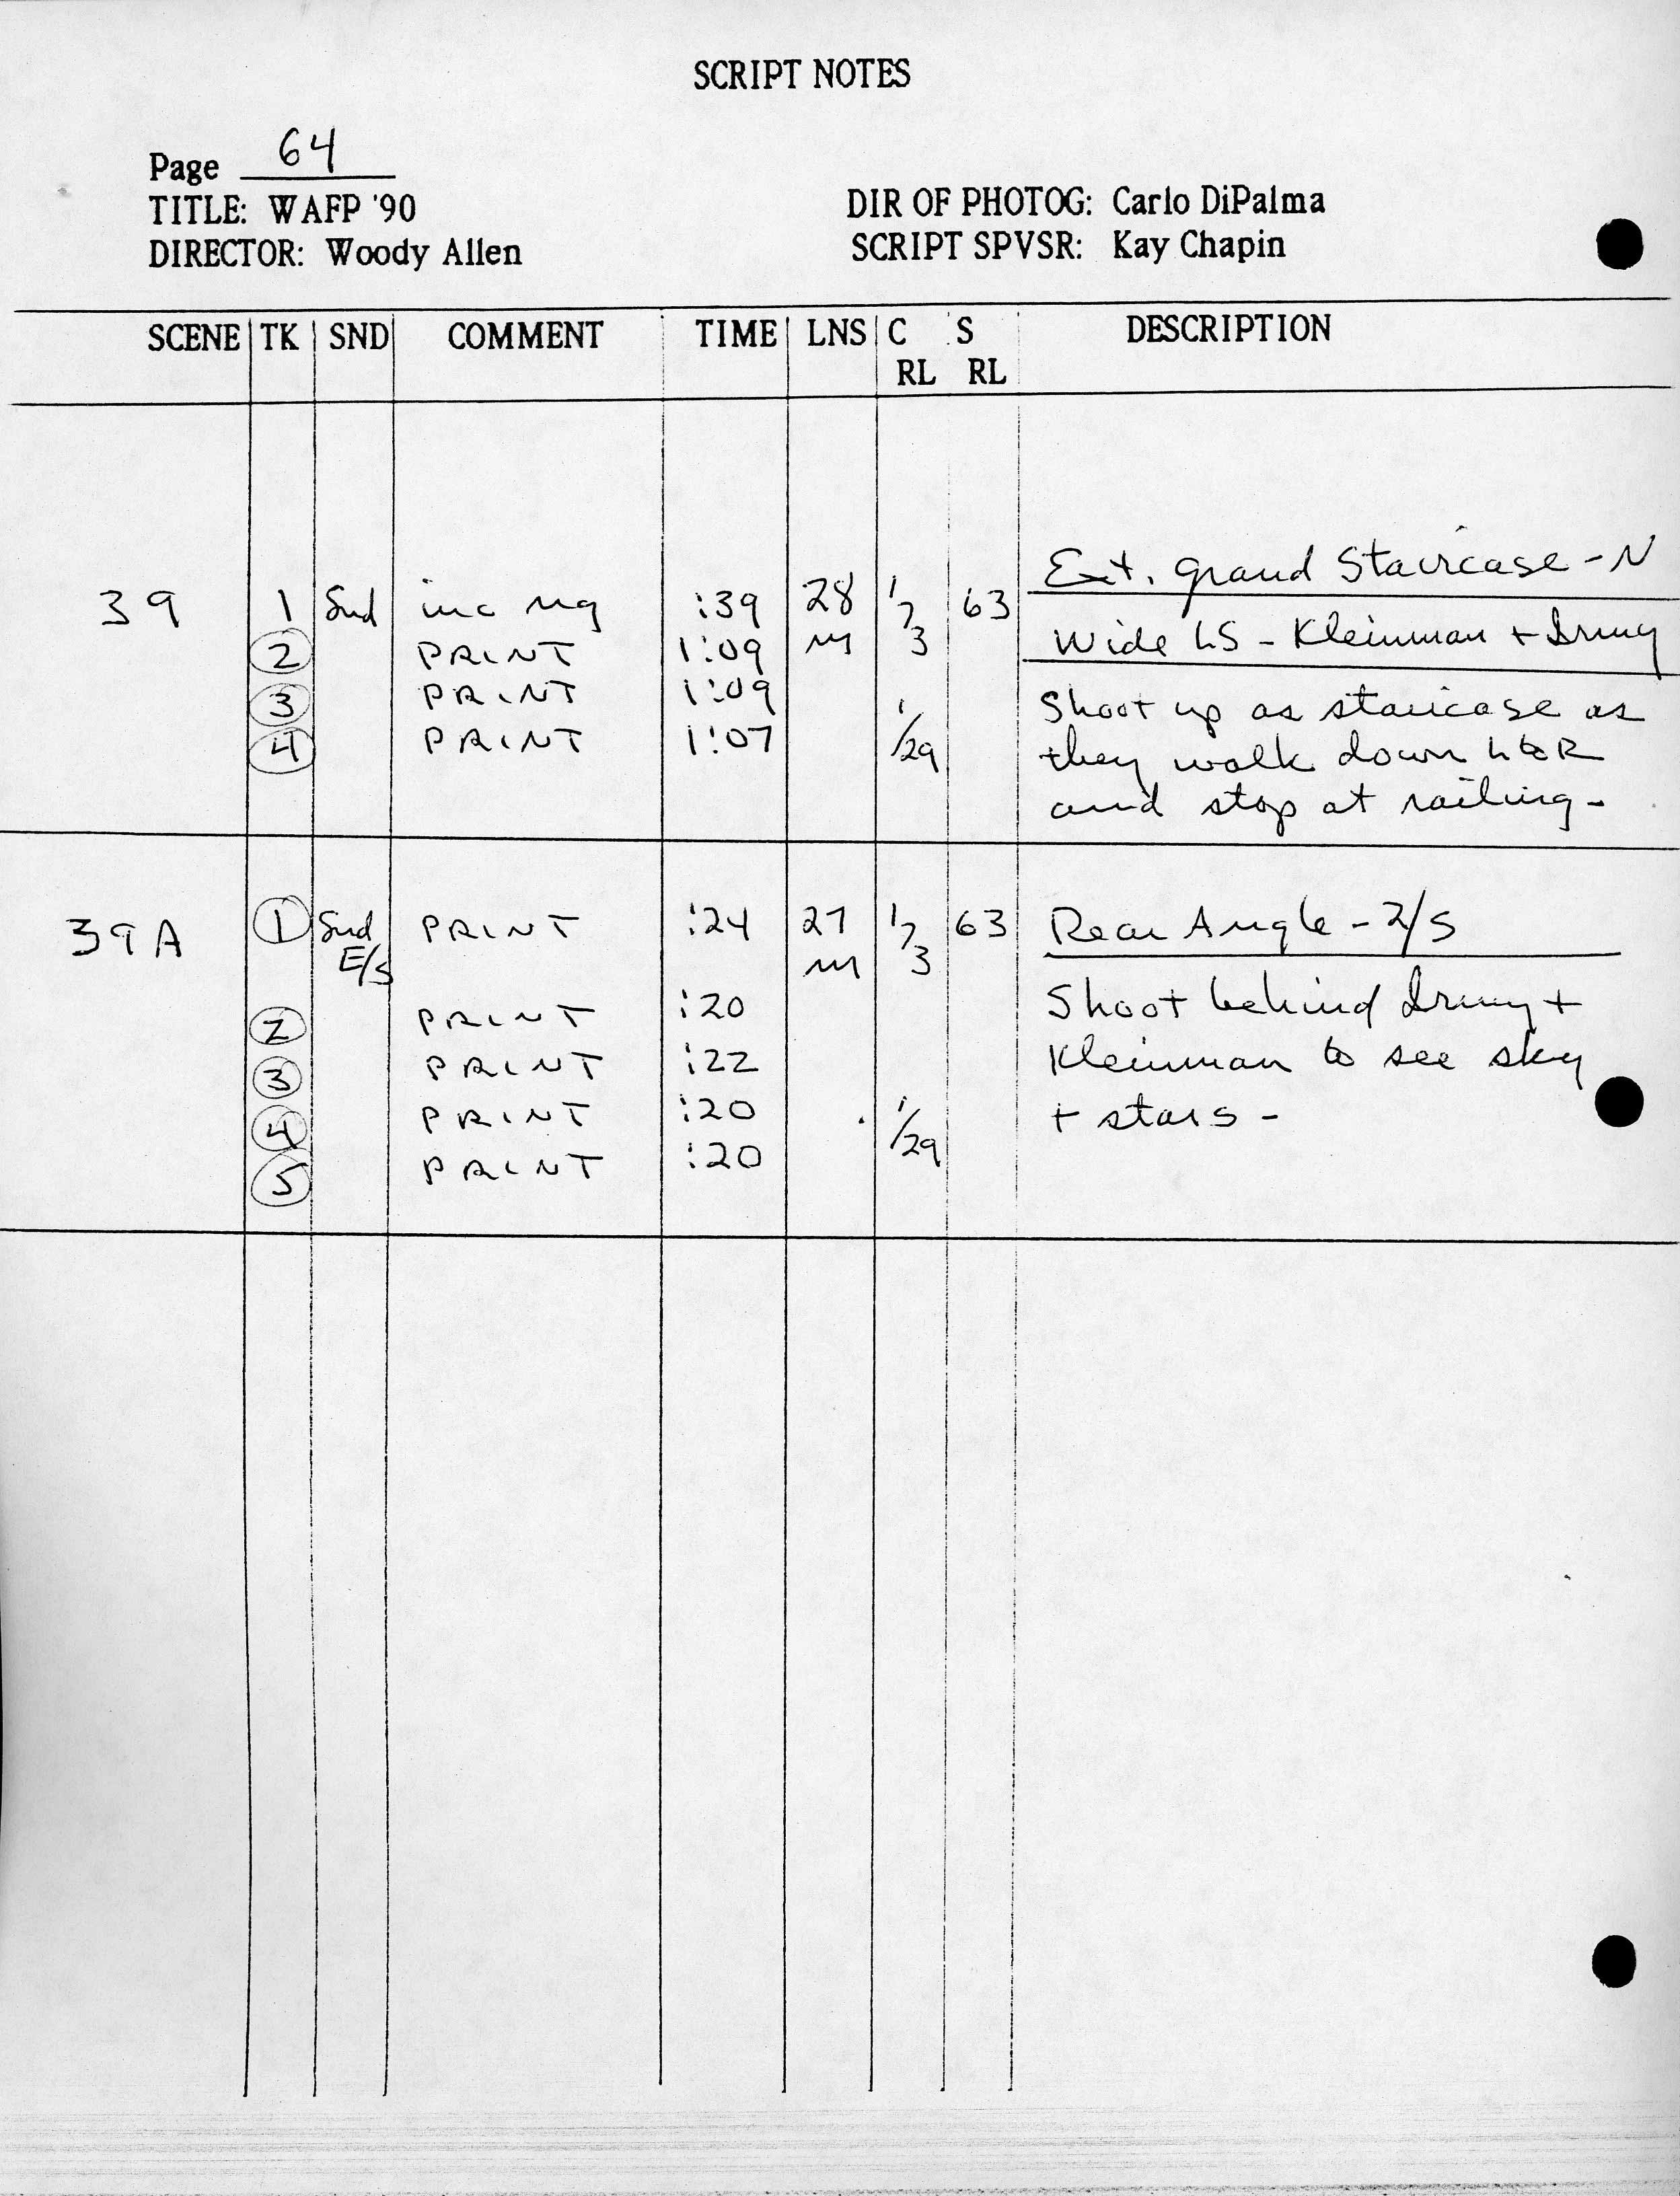 SCRIPT NOTES
Page 64
TITLE: WAFP '90
DIR OF PHOTOG: Carlo DiPalma
DIRECTOR: Woody Allen
SCRIPT SPVSR: Kay Chapin
SCENE TK SND COMMENT TIME LNS C S DESCRIPTION
RL RL
Ext. Grand Staircase - N
39 1 Snd inc ng :39 28 1/3 63
2 PRINT 1:09 m Wide LS - Kleinman + Irmy
3 PRINT 1:09 Shoot up as staircase as
4 PRINT 1:07 1/29 they walk down L to R
and stop at railing -
39A 1 Snd PRINT :24 27 1/3 63 Rear Angle - 2/S
E/S m
2 PRINT :20 Shoot behind Irmy +
3 PRINT :22 Kleinman to see sky
4 PRINT :20 1/29 + stars -
5 PRINT :20